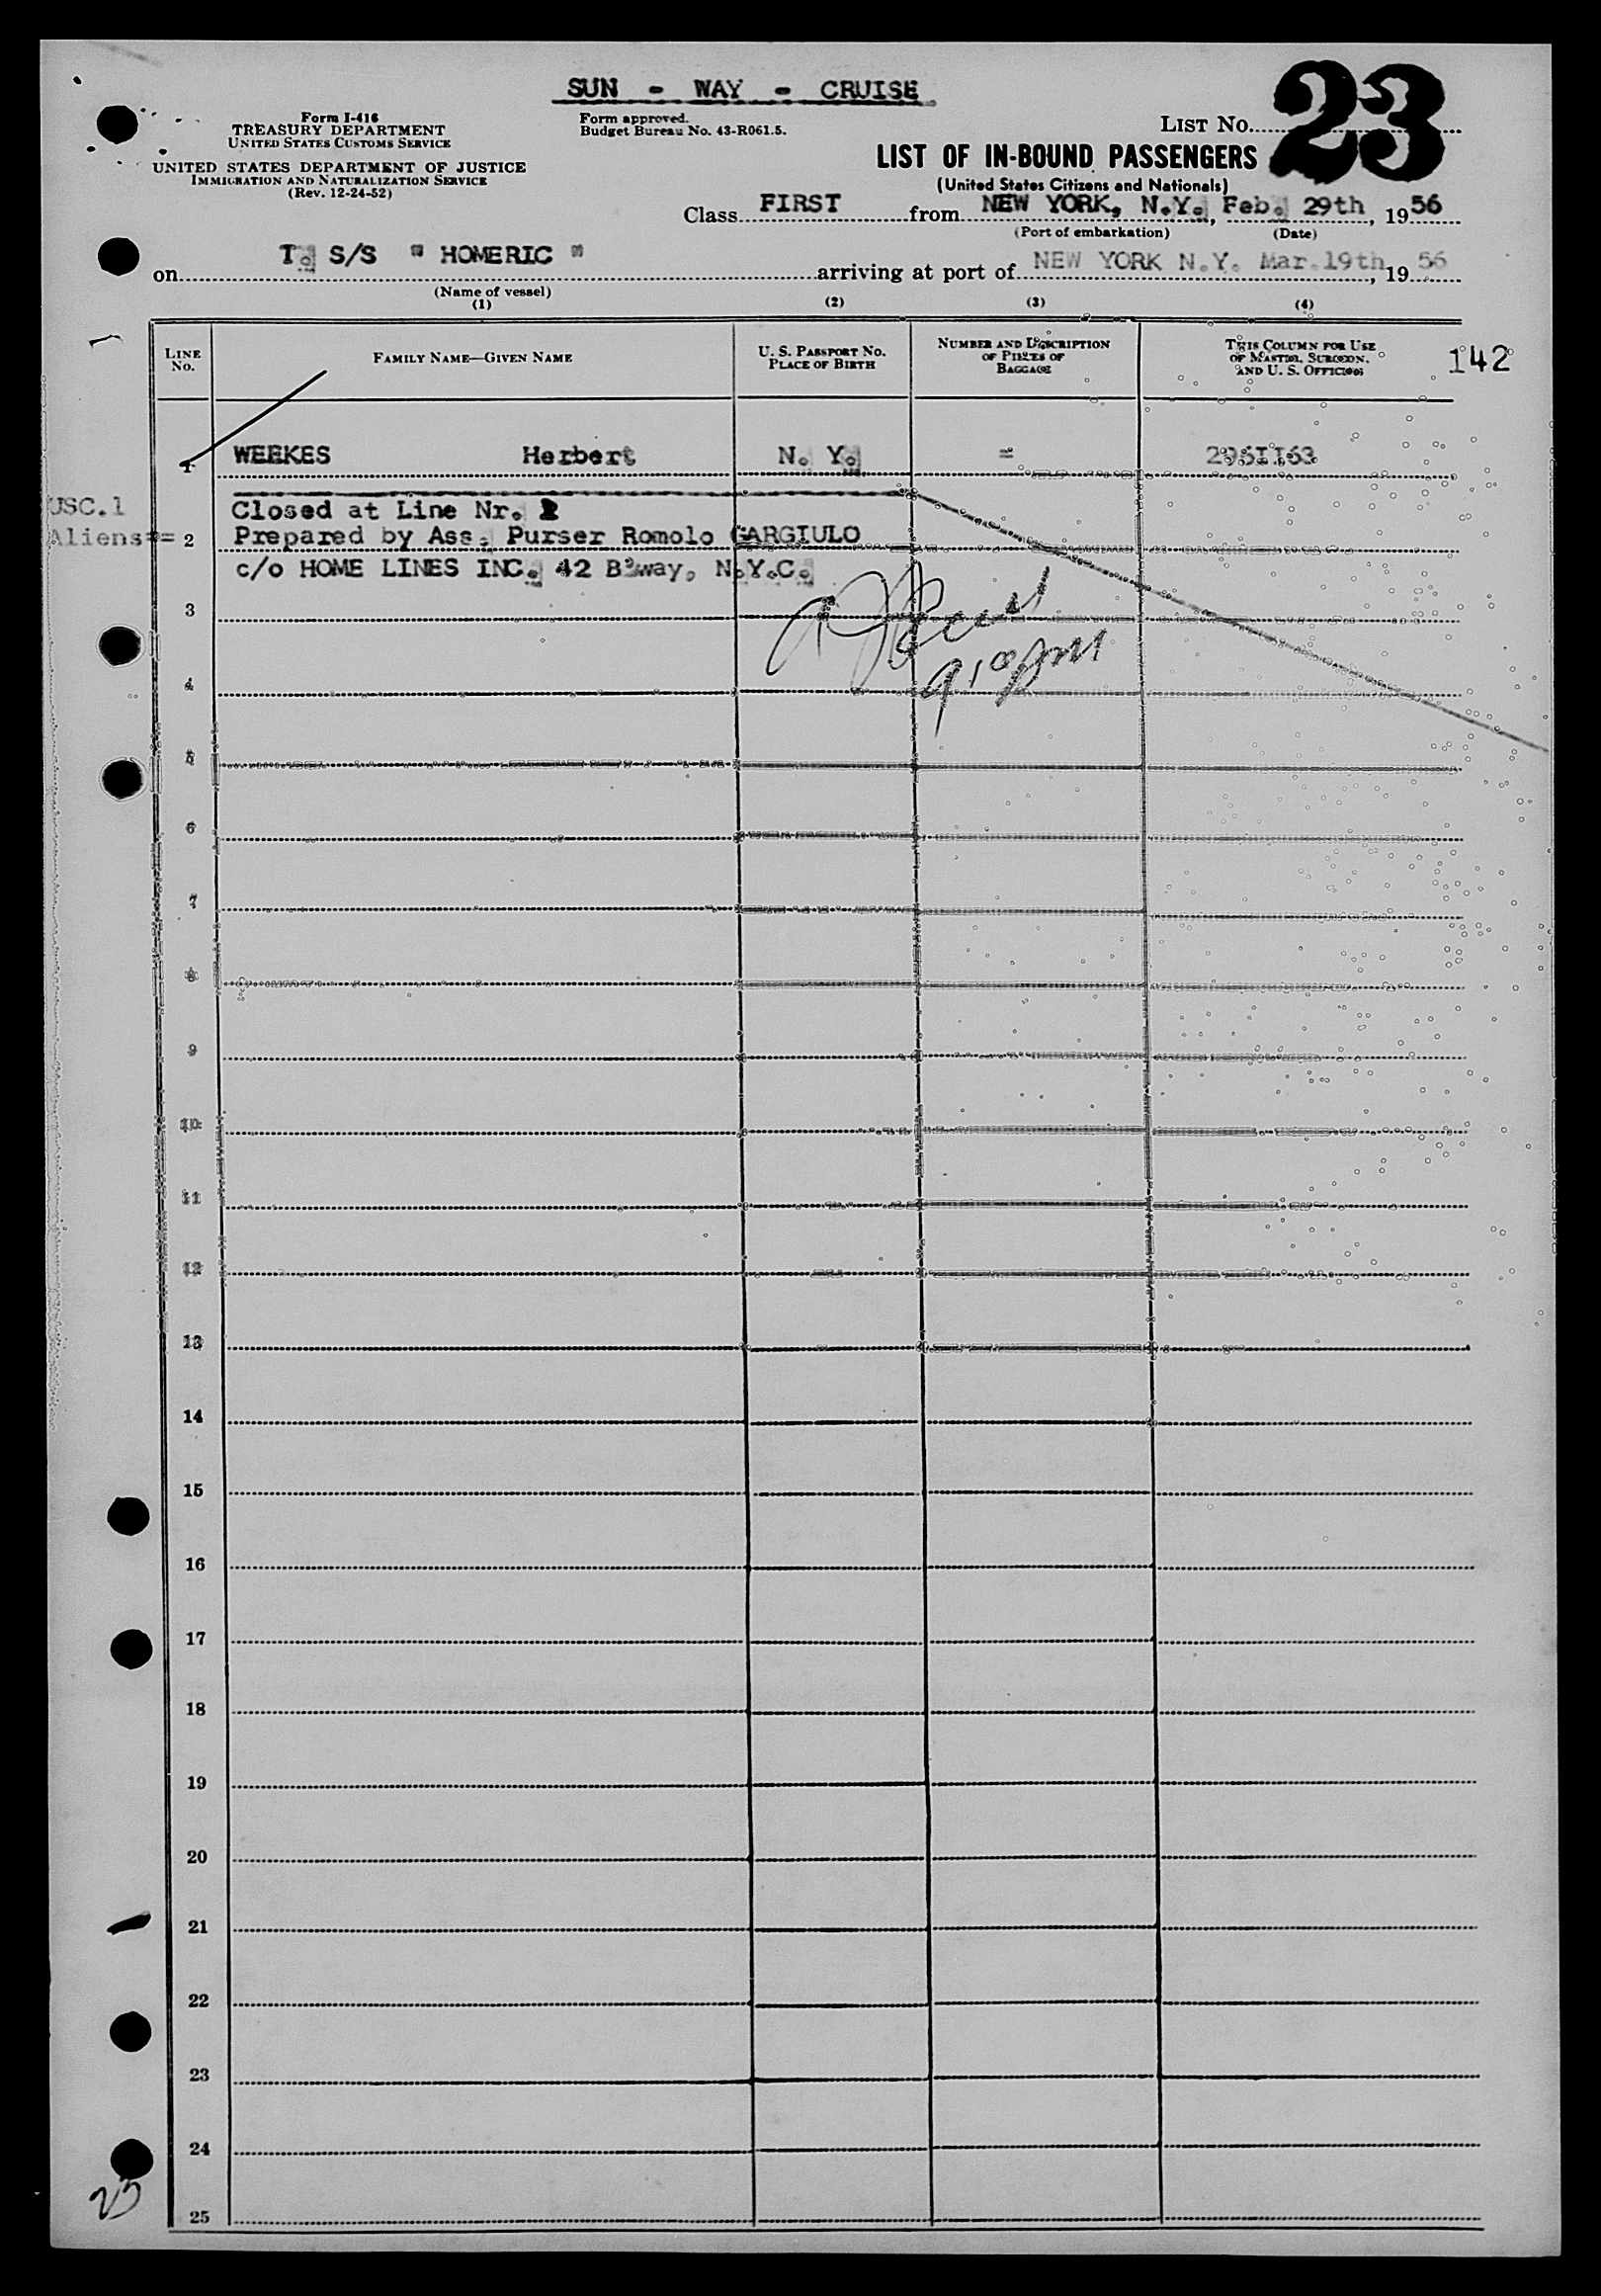 SUN - WAY - CRUISE
Form I-416
TREASURY DEPARTMENT
UNITED STATES CUSTOMS SERVICE
UNITED STATES DEPARTMENT OF JUSTICE
IMMIGRATION AND NATURALIZATION SERVICE
(Rev. 12-24-52)
Form approved.
Budget Bureau No. 43-R061.5.
LIST NO. 23
LIST OF IN-BOUND PASSENGERS
(United States Citizens and Nationals)
Class FIRST from NEW YORK, N.Y., Feb. 29th, 1956
(Port of embarkation) (Date)
on T. S/S " HOMERIC " arriving at port of NEW YORK N.Y. Mar.19th, 1956
(Name of vessel)
(1) (2) (3) (4)
LINE NO.
FAMILY NAME—GIVEN NAME
U. S. PASSPORT NO.
PLACE OF BIRTH
NUMBER AND DESCRIPTION
OF PIECES OF
BAGGAGE
THIS COLUMN FOR USE
OF MASTER, SURGEON,
AND U. S. OFFICERS
142
1 WEEKES Herbert N. Y. =
USC.1
Closed at Line Nr.
Aliens == 2 Prepared by Ass. Purser Romolo GARGIULO
c/o HOME LINES INC. 42 B'way, N.Y.C.
3
4
5
6
7
8
9
10
11
12
13
14
15
16
17
18
19
20
21
22
23
24
23
25